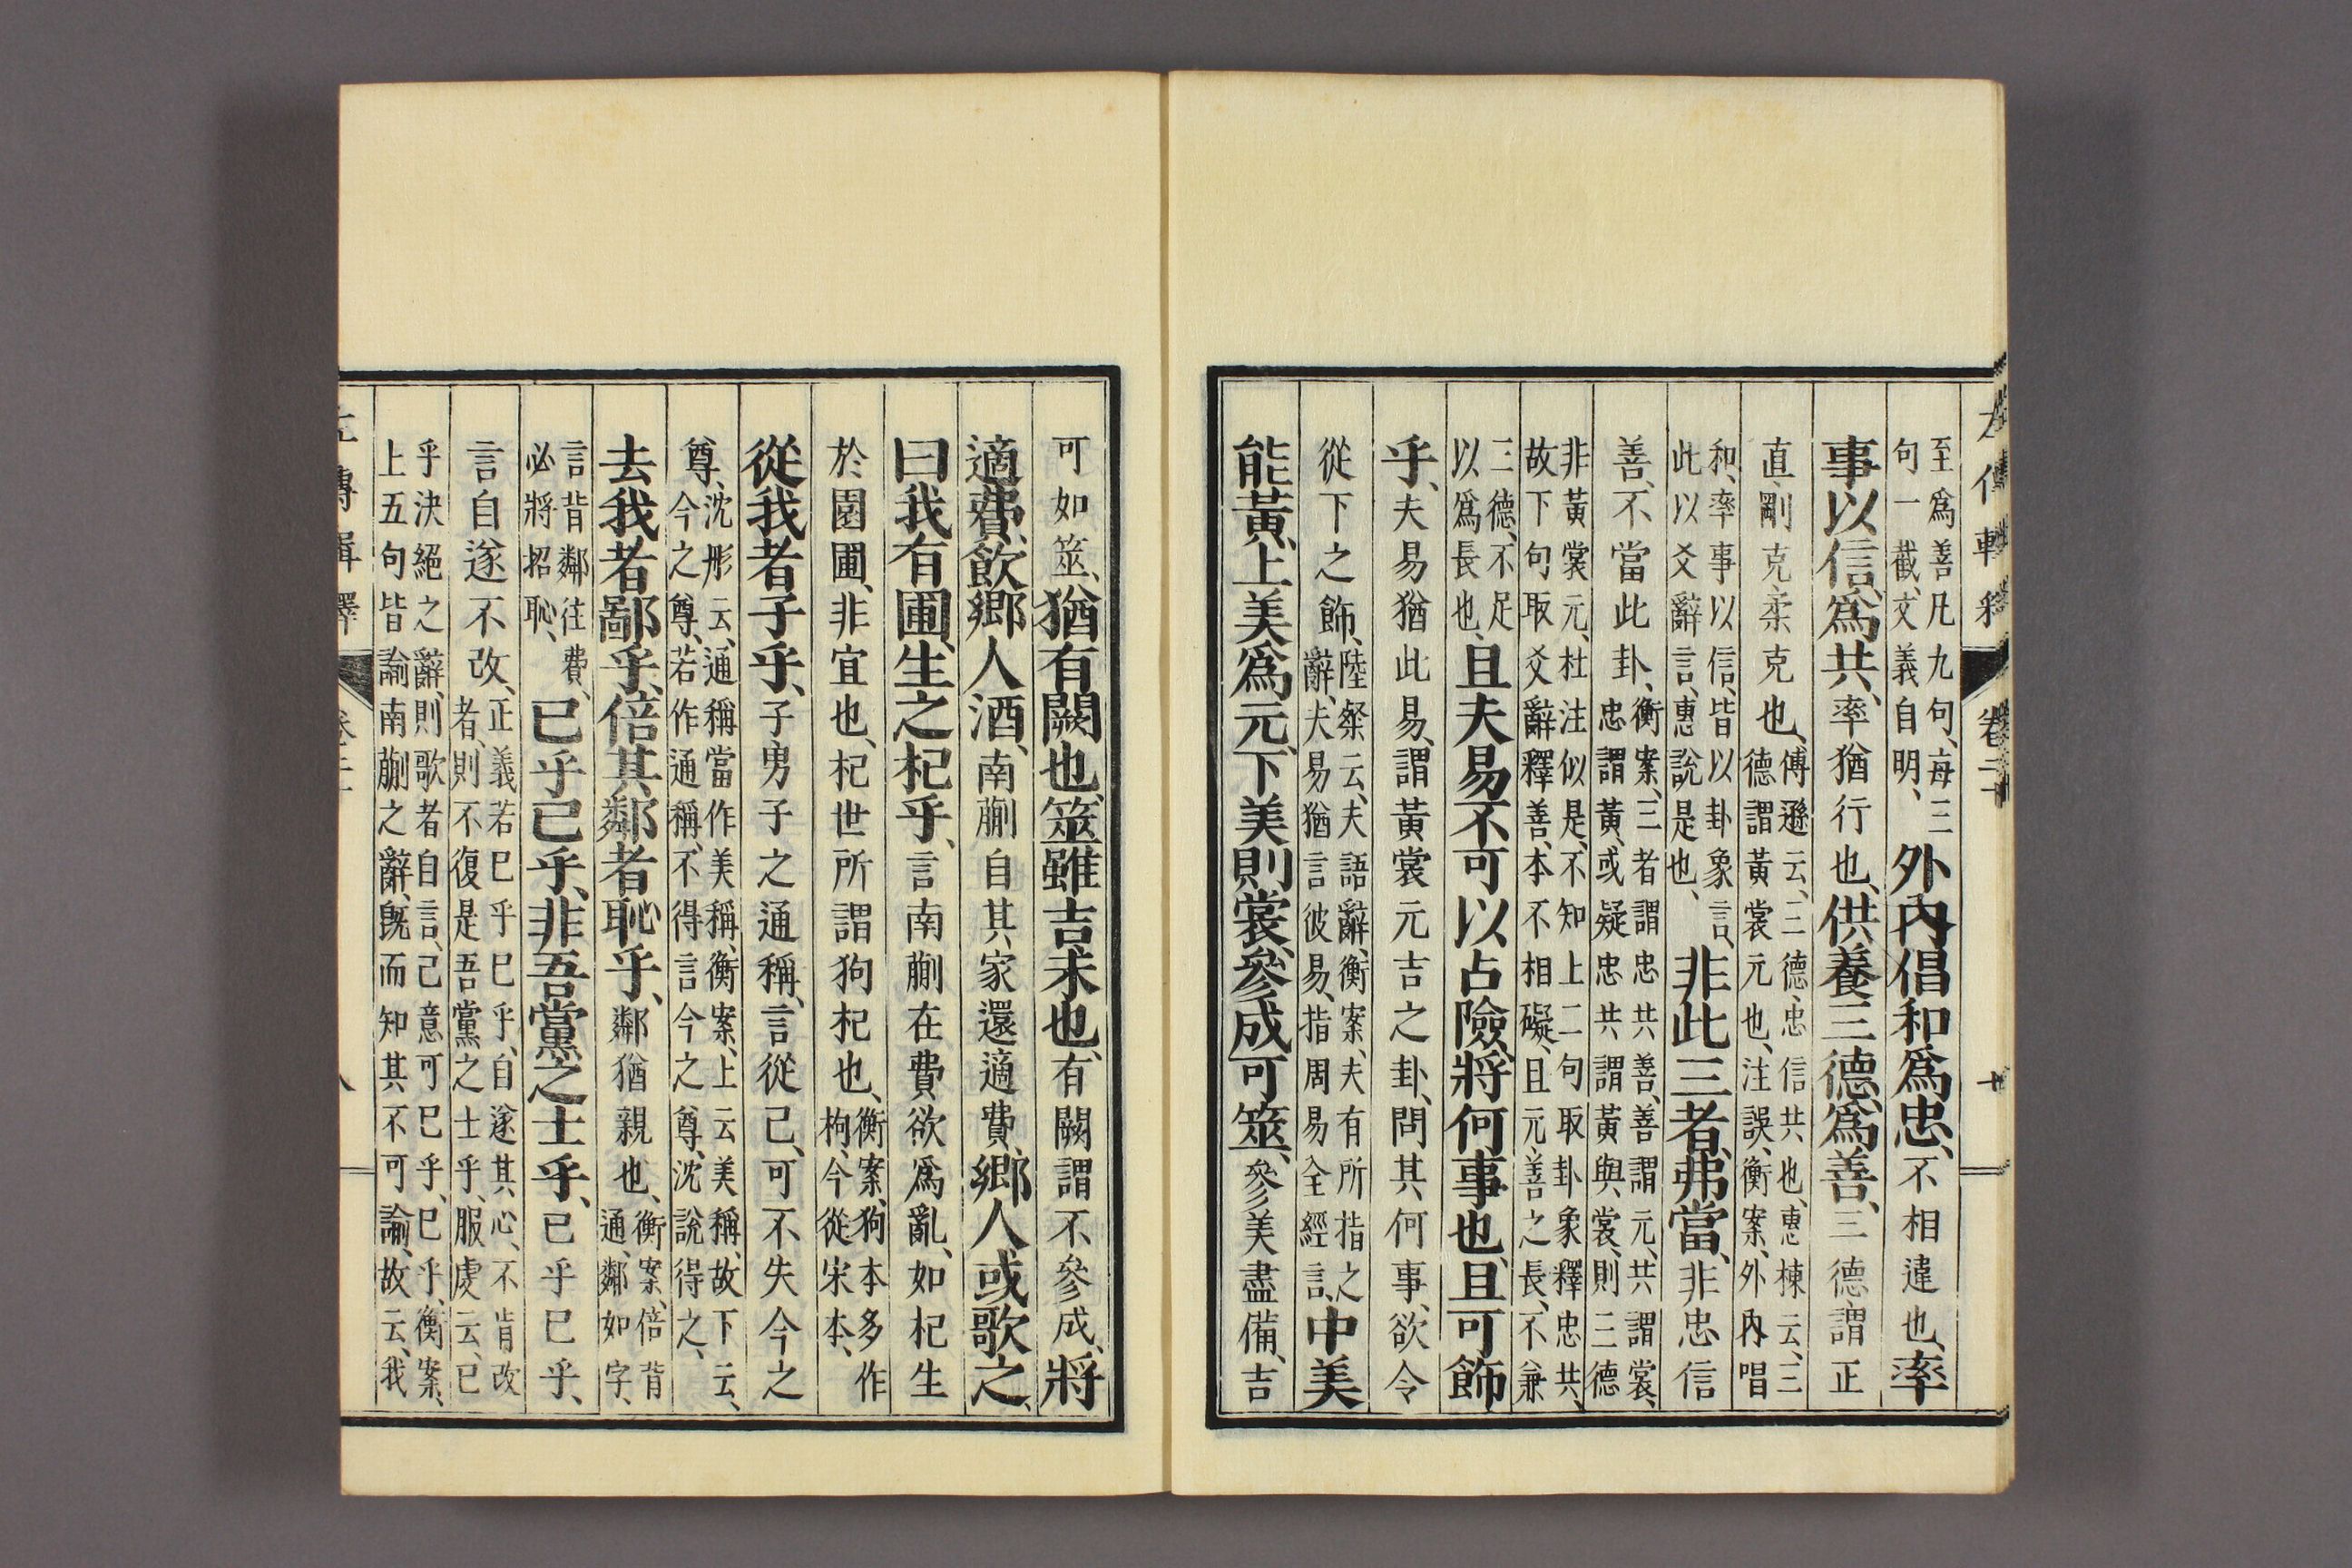 左傳輯釋 卷二十
至爲善凡九句、每三
句一截、文義自明、
外內倡和爲忠、不相違也、率
事以信爲共、率猶行也、供養三德爲善、三德、謂正
直、剛克、柔克也、
傅遜云、三德、忠信共也、惠棟云、三
德謂黃裳元也、注誤、衡案、外內唱
和、率事以信、皆以卦象言、
此以爻辭言、惠說是也、
非此三者弗當、非忠信
善、不當此卦、
衡案、三者謂忠共善、善謂元、共謂裳、
忠謂黃、或疑忠共謂黃與裳、則三德
非黃裳元、杜注似是、不知上二句取卦象釋忠共、
故下句取爻辭釋善、本不相礙、且元善之長、不兼
三德、不足
以爲長也、
且夫易不可以占險、將何事也、且可飾
乎、夫易猶此易、謂黃裳元吉之卦、問其何事、欲令
從下之飾、
陸粲云、夫語辭、衡案、夫有所指之
辭、夫易猶言彼易、指周易全經言、
中美
能黃、上美爲元、下美則裳、參成可筮、參美盡備、吉
可如筮、猶有闕也、筮雖吉未也、有闕謂不參成、將
適費、飲鄉人酒、南蒯自其家還適費、鄉人或歌之、
曰我有圃、生之杞乎、言南蒯在費欲爲亂、如杞生
於園圃、非宜也、杞世所謂狗杞也、
衡案、狗本多作
枸、今從宋本、
從我者子乎、子男子之通稱、言從己、可不失今之
尊、
沈彤云、通稱當作美稱、衡案、上云美稱、故下云、
今之尊、若作通稱、不得言今之尊、沈說得之、
去我者鄙乎、倍其鄰者恥乎、鄰猶親也、
衡案、倍背
通、鄰如字、
言背鄰往費、
必將招恥、
已乎已乎、非吾黨之士乎、已乎已乎、
言自遂不改、
正義若已乎已乎、自遂其心、不肯改
者、則不復是吾黨之士乎、服虔云、已
乎決絕之辭、則歌者自言、己意可已乎、已乎、衡案、
上五句皆諭南蒯之辭、既而知其不可諭、故云、我
左傳輯釋 卷二十